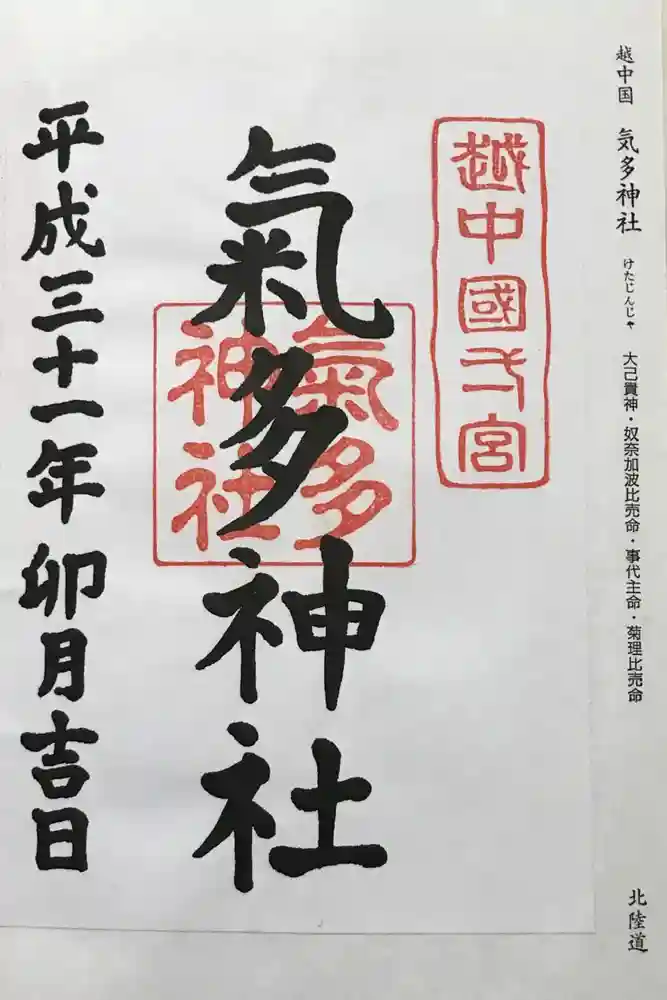 越中国 気多神社 けたじんじゃ 大己貴神・奴奈加波比売命・事代主命・菊理比売命
北陸道
越中國一宮
氣多神社
氣多
神社
平成三十一年 卯月吉日